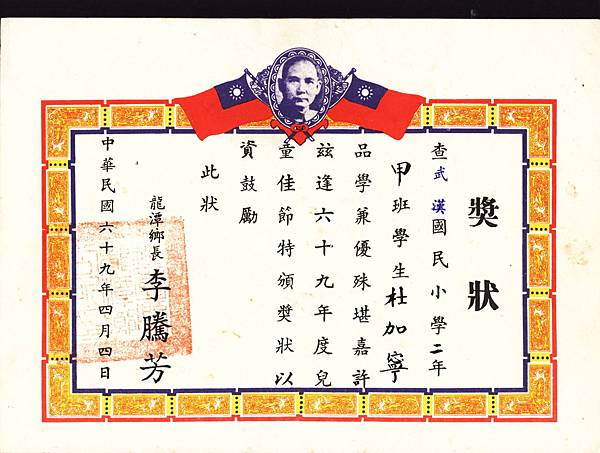 獎狀
查武漢國民小學二年
甲班學生杜加寧
品學兼優殊堪嘉許
茲逢六十九年度兒
童佳節特頒獎狀以
資鼓勵
此狀
龍潭鄉長李騰芳
中華民國六十九年四月四日